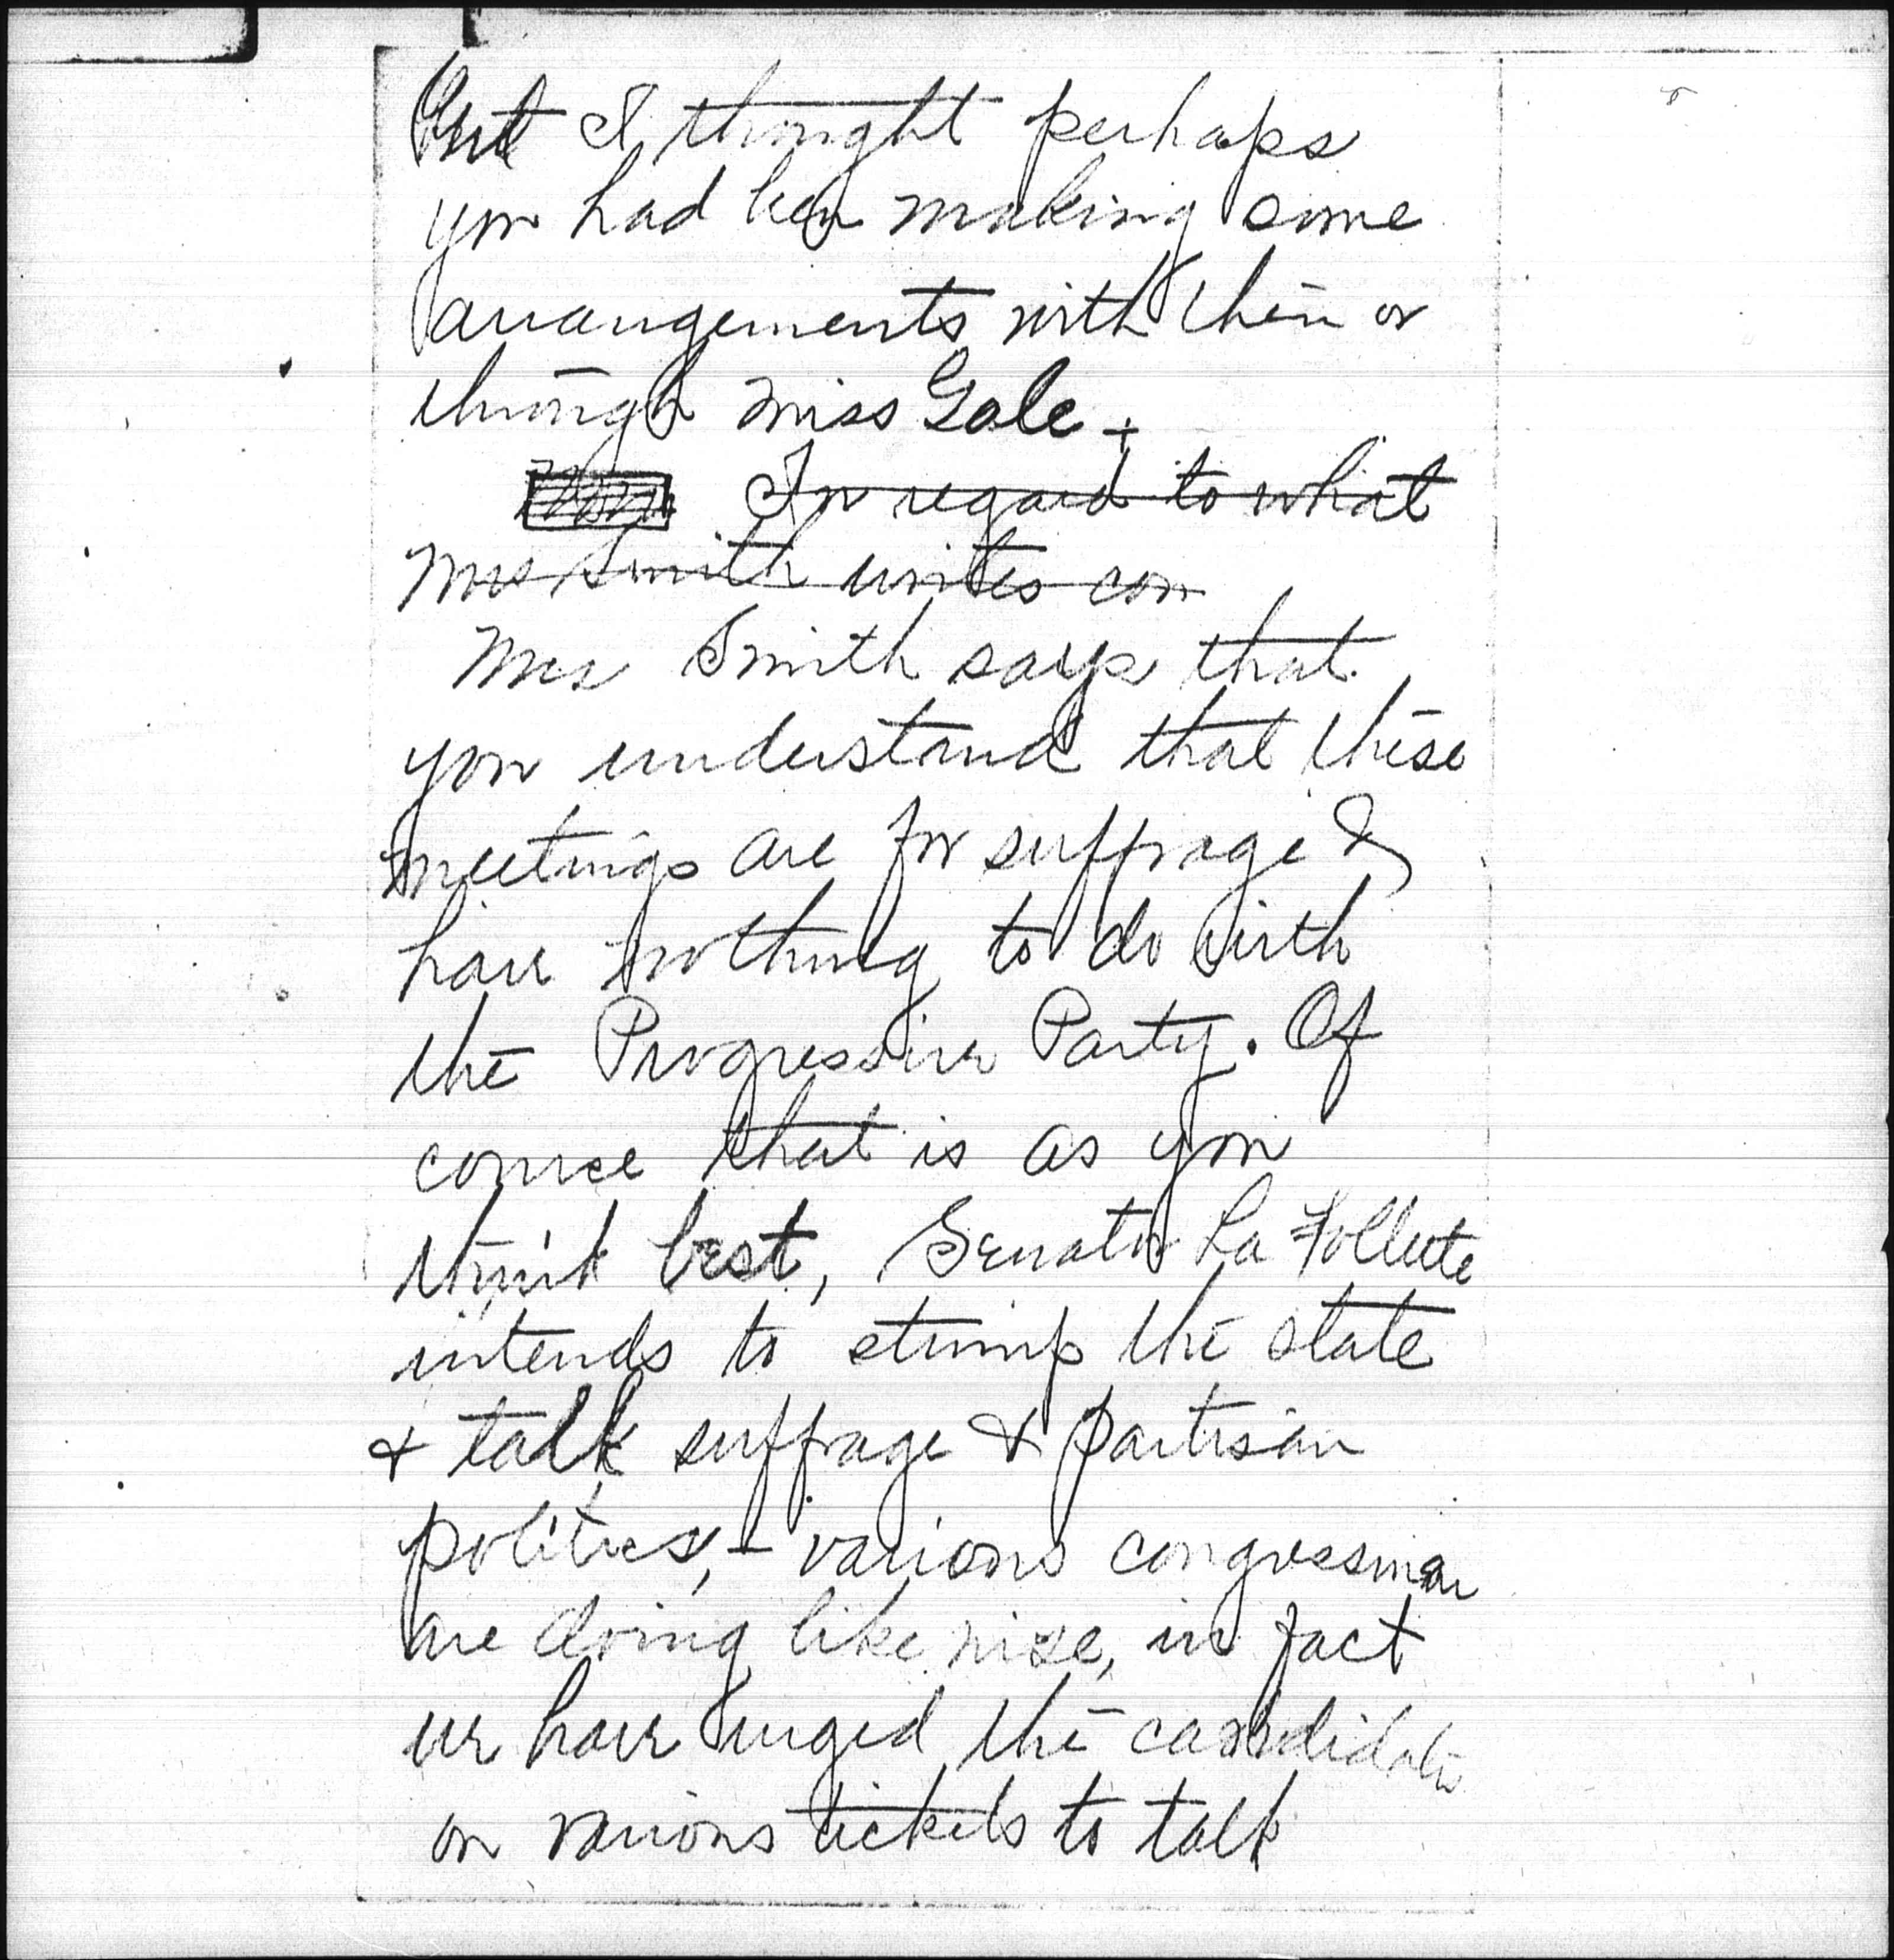 But I thought perhaps
you had been making some
arrangements with them or
through Miss Gale +
In regard to what
Mrs Smith writes con
Mrs Smith says that
you understand that these
meetings are for suffrage &
have nothing to do with
the Progressive Party. Of
course that is as you
think best, Senator La Follette
intends to stump the state
& talk suffrage & partisan
politics, - various congressman
are doing like wise, in fact
we have urged the candidates
on various tickets to talk